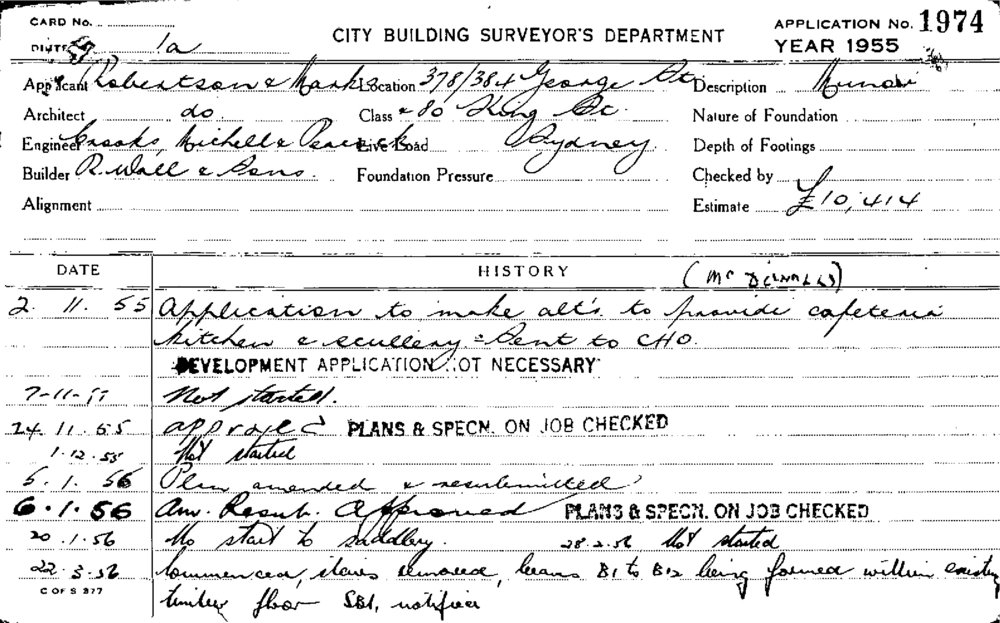 CARD No.
CITY BUILDING SURVEYOR'S DEPARTMENT
APPLICATION No. 1974
1a
YEAR 1955
Applicant Robertson & Marks
Location 378/384 George St
Description
Architect do
Class & 80 King St.
Nature of Foundation
Engineer Crooks, Michell & Peacock
Live Load Sydney.
Depth of Footings
Builder R. Wall & Sons.
Foundation Pressure
Checked by
Alignment
Estimate £10,414
DATE
HISTORY
2. 11. 55 Application to make alt's to provide cafeteria
kitchen & scullery = Sent to CHO.
DEVELOPMENT APPLICATION NOT NECESSARY
7-11-55 Not started.
24. 11. 55 approved PLANS & SPECN. ON JOB CHECKED
1.12.55 Not started
5. 1. 56 Plan amended & resubmitted
6.1.56 Am. Resub. Approved PLANS & SPECN. ON JOB CHECKED
20.1.56 No start to 28.2.56 Not started
22.3.56 Commenced, stairs removed, beams B1 to B12 being formed within existing
C OF S 377
timber floor SB1, notified